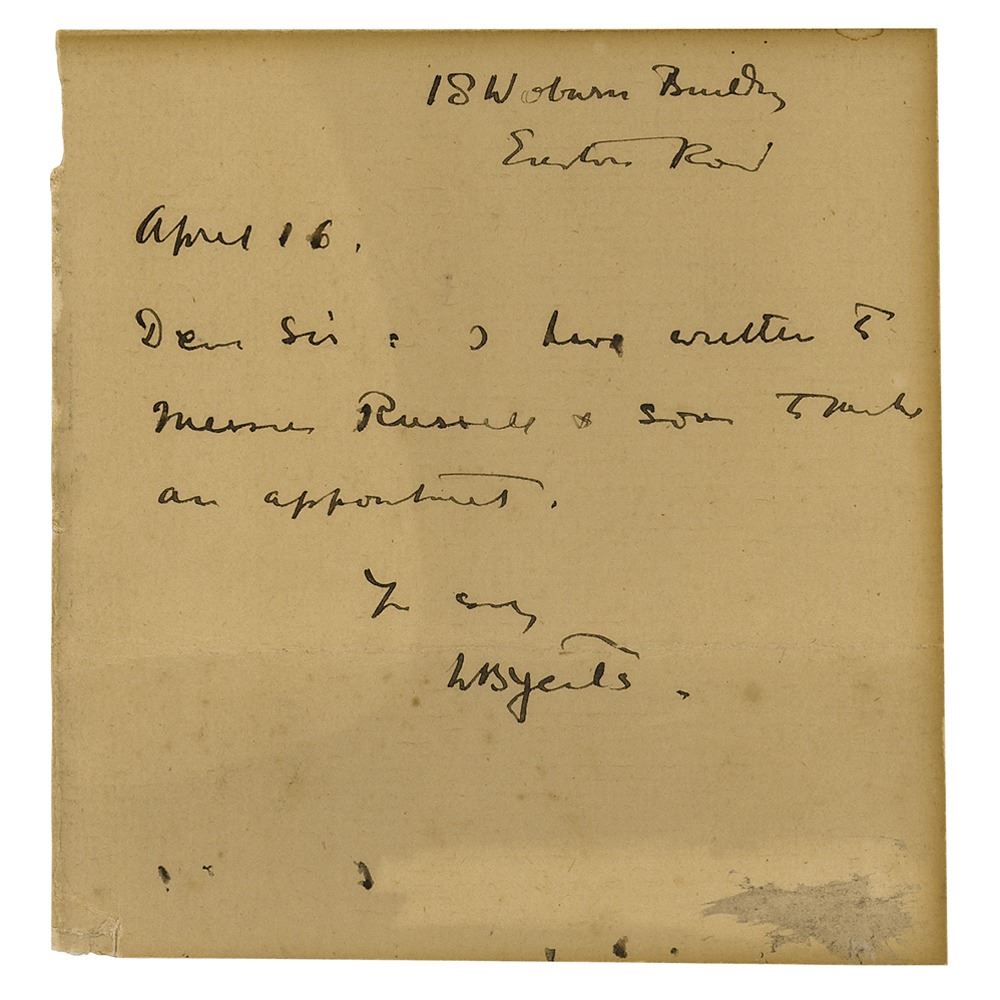 18 Woburn Buildings
Euston Road
April 16.
Dear Sir : I have written to
Messrs Russell & Sons to make
an appointment.
Yrs sny
WB Yeats.